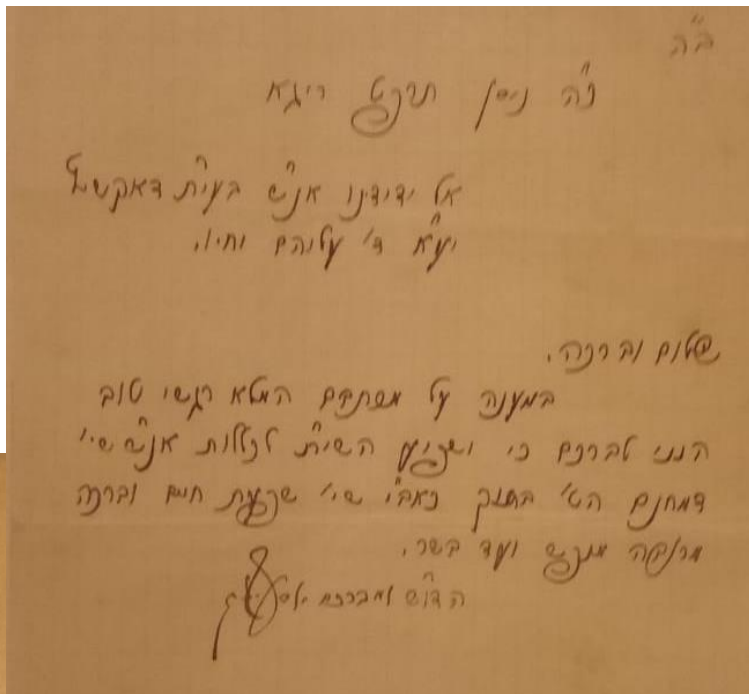 ב"ה
כ"ה ניסן תרפ"ט ריגא
אל ידידינו אנ"ש בעי"ת דאקשיץ
יע"א ד' עליהם יחיו.
שלום וברכה.
במענה על מכתבם המלא רגשי טוב
הנני לברכם כי ישפיע השי"ת לכללות אנ"ש שי'
דמחנם הט' בתוך כאב"י שי' שפעת חיים וברכה
מרובה מנפש ועד בשר.
הדו"ש ומברכם יוסף יצחק